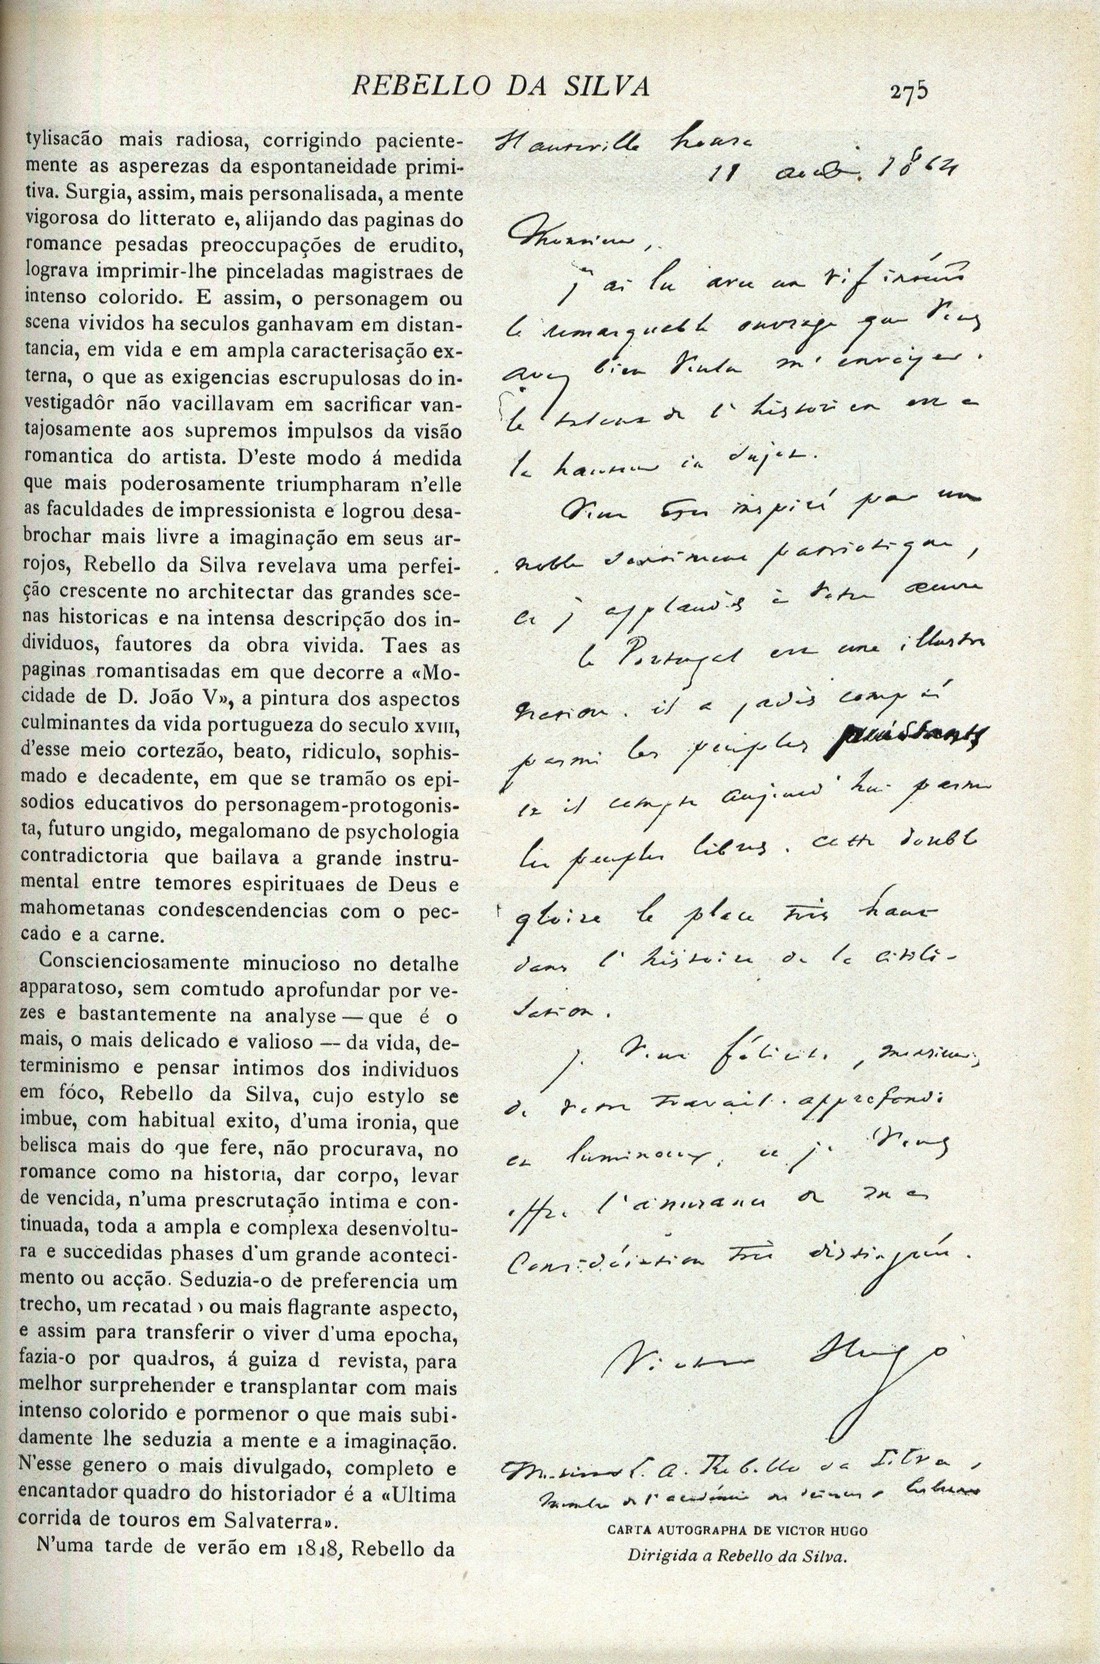 REBELLO DA SILVA
275
tylisacão mais radiosa, corrigindo paciente-
mente as asperezas da espontaneidade primi-
tiva. Surgia, assim, mais personalisada, a mente
vigorosa do litterato e, alijando das paginas do
romance pesadas preoccupações de erudito,
lograva imprimir-lhe pinceladas magistraes de
intenso colorido. E assim, o personagem ou
scena vividos ha seculos ganhavam em distan-
tancia, em vida e em ampla caracterisação ex-
terna, o que as exigencias escrupulosas do in-
vestigadôr não vacillavam em sacrificar van-
tajosamente aos supremos impulsos da visão
romantica do artista. D'este modo á medida
que mais poderosamente triumpharam n'elle
as faculdades de impressionista e logrou desa-
brochar mais livre a imaginação em seus ar-
rojos, Rebello da Silva revelava uma perfei-
ção crescente no architectar das grandes sce-
nas historicas e na intensa descripção dos in-
dividuos, fautores da obra vivida. Taes as
paginas romantisadas em que decorre a «Mo-
cidade de D. João V», a pintura dos aspectos
culminantes da vida portugueza do seculo XVIII,
d'esse meio cortezão, beato, ridiculo, sophis-
mado e decadente, em que se tramão os epi-
sodios educativos do personagem-protogonis-
ta, futuro ungido, megalomano de psychologia
contradictoria que bailava a grande instru-
mental entre temores espirituaes de Deus e
mahometanas condescendencias com o pec-
cado e a carne.
Conscienciosamente minucioso no detalhe
apparatoso, sem comtudo aprofundar por ve-
zes e bastantemente na analyse — que é o
mais, o mais delicado e valioso — da vida, de-
terminismo e pensar intimos dos individuos
em fóco, Rebello da Silva, cujo estylo se
imbue, com habitual exito, d'uma ironia, que
belisca mais do que fere, não procurava, no
romance como na historia, dar corpo, levar
de vencida, n'uma prescrutação intima e con-
tinuada, toda a ampla e complexa desenvoltu-
ra e succedidas phases d'um grande aconteci-
mento ou acção. Seduzia-o de preferencia um
trecho, um recatad › ou mais flagrante aspecto,
e assim para transferir o viver d'uma epocha,
fazia-o por quadros, á guiza d revista, para
melhor surprehender e transplantar com mais
intenso colorido e pormenor o que mais subi-
damente lhe seduzia a mente e a imaginação.
N'esse genero o mais divulgado, completo e
encantador quadro do historiador é a «Ultima
corrida de touros em Salvaterra».
N'uma tarde de verão em 1848, Rebello da
Hauteville house
11 1864
Monsieur,
j'ai lu avec un vif intérêt
le remarquable ouvrage que vous
avez bien voulu m'envoyer.
le talent de l'historien est à
la hauteur du sujet.
Vous êtes inspiré par un
noble sentiment patriotique,
et j'applaudis à votre œuvre
le Portugal est une illustre
nation. il a jadis compté
parmi les peuples puissants
et il compte aujourd'hui parmi
les peuples libres. cette double
gloire le place très haut
dans l'histoire de la civili-
sation.
je vous félicite, monsieur,
de votre travail approfondi
et lumineux, et je vous
offre l'assurance de ma
considération très distinguée.
Victor Hugo
Monsieur L. A. Rebello da Silva,
Membre de l'académie des sciences
CARTA AUTOGRAPHA DE VICTOR HUGO
Dirigida a Rebello da Silva.